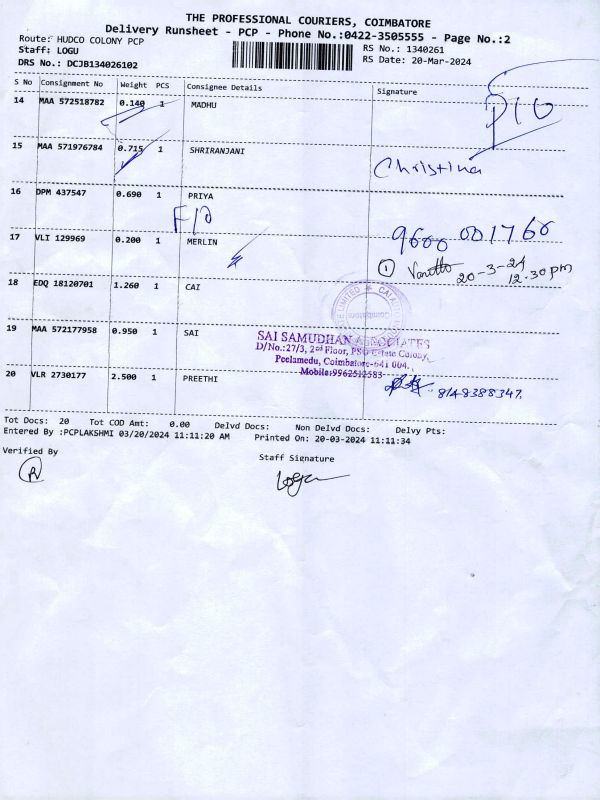 THE PROFESSIONAL COURIERS, COIMBATORE
Delivery Runsheet - PCP - Phone No.:0422-3505555 - Page No.:2
Route: HUDCO COLONY PCP
RS No.: 1340261
Staff: LOGU
RS Date: 20-Mar-2024
DRS No.: DCJB134026102
S No Consignment No Weight PCS Consignee Details Signature
14 MAA 572518782 0.140 1 MADHU
15 MAA 571976784 0.715 1 SHRIRANJANI
Christina
16 DPM 437547 0.690 1 PRIYA
9600 001760
17 VLI 129969 0.200 1 MERLIN
20-3-24
12.30pm
18 EDQ 18120701 1.260 1 CAI
19 MAA 572177958 0.950 1 SAI
SAI SAMUDHAN ASSOCIATES
D/No.:27/3, 2nd Floor, PSG Estate Colony,
Peelamedu, Coimbatore-641 004.
Mobile:9962512583
20 VLR 2730177 2.500 1 PREETHI
8148388347.
Tot Docs: 20 Tot COD Amt: 0.00 Delvd Docs: Non Delvd Docs: Delvy Pts:
Entered By :PCPLAKSHMI 03/20/2024 11:11:20 AM Printed On: 20-03-2024 11:11:34
Verified By
Staff Signature